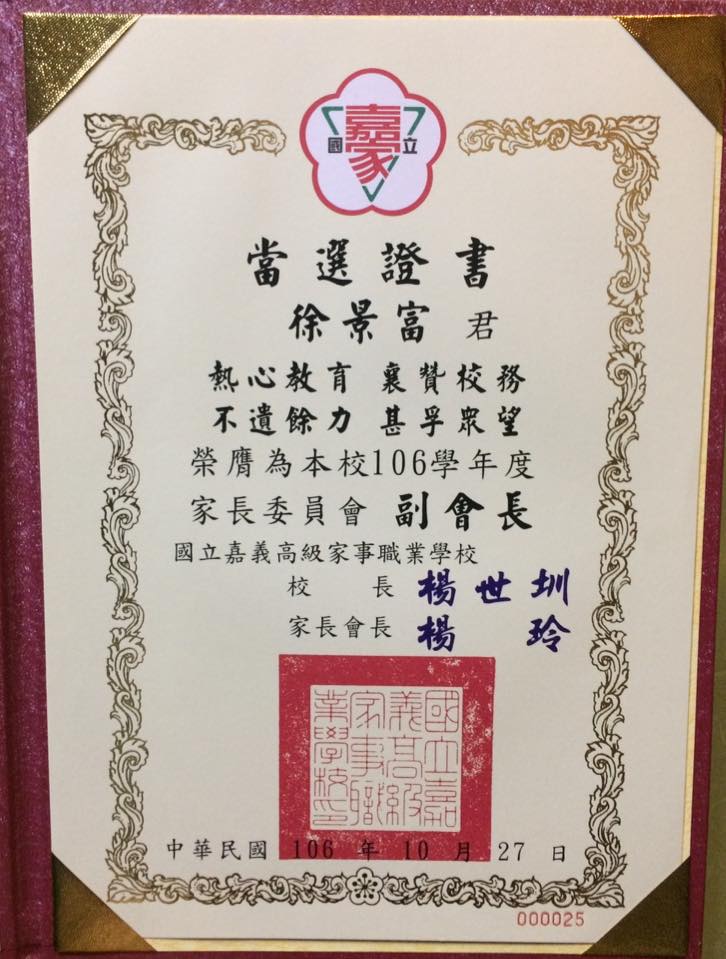 國 嘉家 立
當選證書
徐景富 君
熱心教育 襄贊校務
不遺餘力 甚孚眾望
榮膺為本校106學年度
家長委員會 副會長
國立嘉義高級家事職業學校
校 長 楊世圳
家長會長 楊 玲
國立嘉
義高級
家事職
業學校印
中華民國 106 年 10 月 27 日
000025